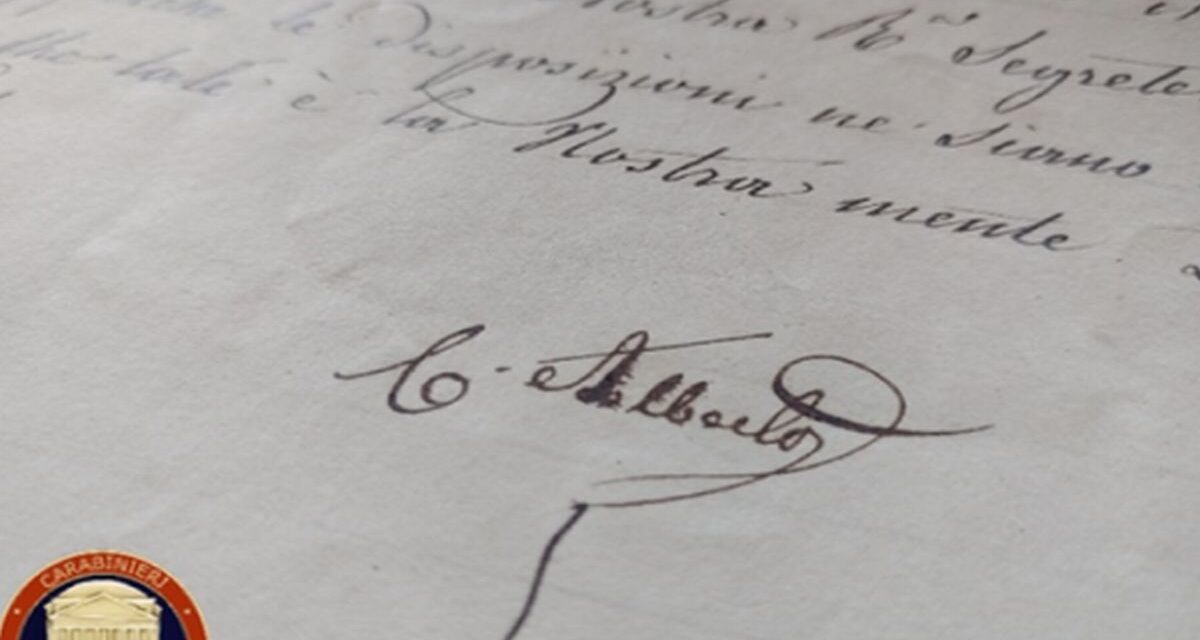 Nostra R.ª Segrete
le disposizioni ne siano
è la Nostra mente
C. Alberto
CARABINIERI